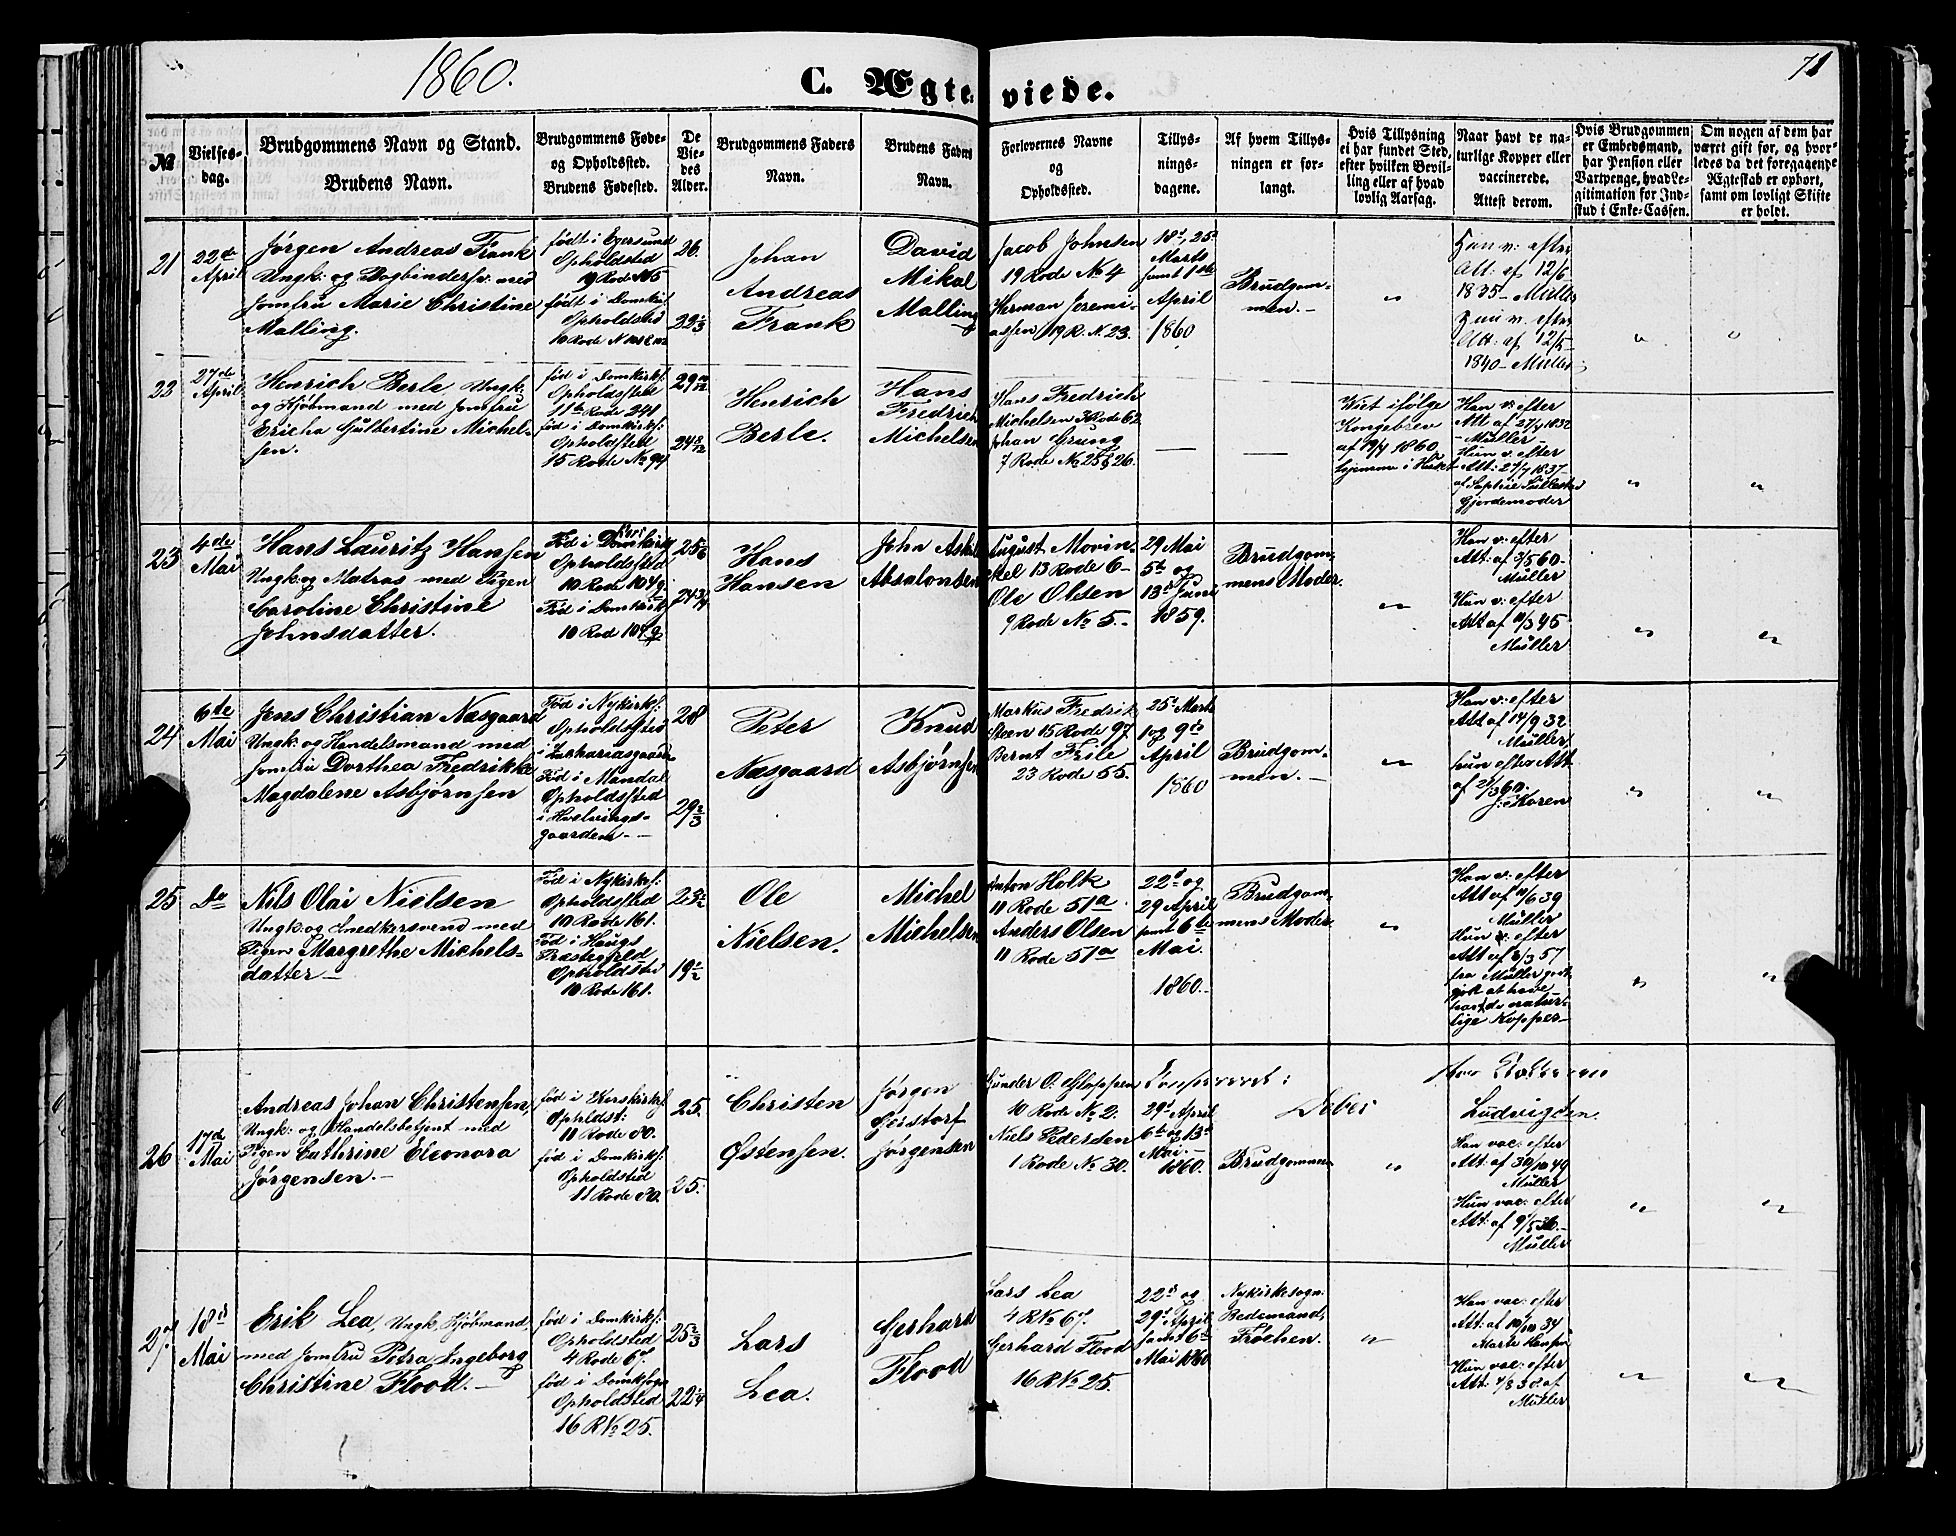 1860.
C. Ægteviede.
71
No
Vielses-
dag.
Brudgommens Navn og Stand.
Brudens Navn.
Brudgommens Føde-
og Opholdssted.
Brudens Fødested.
De
Vie-
des
Alder.
Brudgommens Faders
Navn.
Brudens Faders
Navn.
Forlovernes Navne
og
Opholdssted.
Tillys-
nings-
dagene.
Af hvem Tillys-
ningen er for-
langt.
Hvis Tillysning
ei har fundet Sted,
efter hvilken Bevil-
ling eller af hvad
lovlig Aarsag.
Naar havt de na-
turlige Kopper eller
vaccinerede.
Attest derom.
Hvis Brudgommen
er Embedsmand,
har Pension eller
Vartpenge, hvad Le-
gitimation for Ind-
skud i Enke-Cassen.
Om nogen af dem har
været gift før, og hvor-
ledes da det foregaaende
Ægteskab er ophørt,
samt om lovligt Skifte
er holdt.
21
22de
April
Jørgen Andreas Frank
Ungk: og Bogbindersv: med
Jomfru Marie Christine
Malling.
født i Egersund
Opholdsted
født i Domkirk:
Opholdsted
26.
22 1/3
Johan
Andreas
Frank
David
Mikal
Malling
Jacob Johnsen
19 Rode No 4
Herman Jeremi-
assen 19 R. N. 23.
18d, 25d
Marts
samt 1ste
April
1860
Brudgom-
men. -
"
Han v: efter
Att: af 12/6
1835 - Müller
Hun v. efter
Att: af 12/5
1840 - Müller
"
"
22
27de
April
Henrich Berle Ungk:
og Kjøbmand med Jomfru
Ericha Gulbertine Michel-
sen.
fød i Domkirk:
Opholdsted
11te Rode 241
fød i Domkirk:
Opholdsted
15 Rode No 94
24 8/12
Henrich
Berle.
Hans
Fredrich
Michelsen
Hans Fredrich
Michelsen 3 Rode 62
Johan Grung
7 Rode No 25 & 26.
—
—
Viet ifølge
Kongebrev
af 19/4 1860
hjemme i Huset
Han v: efter
Att af 27/4 1832
- Müller -
Hun v: efter
Att: 27/4 1837
Gjordemoder
"
"
23
4de
Mai
Hans Lauritz Hansen
Ungk: og Matros med Pigen
Caroline Christine
Johnsdatter.
Fød i Korskirk
Opholdsted
10 Rode 104 g
Fød i Domkirk
10 Rod 104 g
24 3/4
Hans
Hansen
John Askel
Absalonsen
August Movin-
kel 13 Rode 6 -
Ole Olsen
9 Rode No 5. -
29 Mai
5te og
13d Juni
1859.
Brudgom-
mens Moder.
"
Han v: efter
Att: af 3/5 60 -
Müller
Hun v: efter
Att af 11/3 45
Müller
"
"
24
6te
Mai
Jens Christian Næsgaard
Ungk: og Handelsmand med
Jomfru Dorthea Fredrikke
Magdalene Asbjørnsen
Fød i Nykirk:
Opholdsted
i Zachariasgaarden
Fød i Mandal
Opholdsted
i Hvelvings-
gaarden. -
28
29 2/3
Peter
Næsgaard
Knud
Asbjørnsen
Markus Fredrik
Steen 15 Rode 97.
Bernt Friele
23 Rode 55.
25d Marts
1 og 9de
April
1860
Brudgom-
men. -
"
Han v: efter
Att af 14/9 32.
Müller
hun efter Att
af 21/3 60.
J: Koren
"
"
25
Do
Nils Olai Nielsen
Ungk: og Snedkersvend med
Pigen Margrethe Michels-
datter -
Fød i Nykirk:
Opholdsted
10 Rode 161.
Fød i Haugs
Præstegjeld
Opholdsted
10 Rode 161.
19 1/2
Ole
Nielsen.
Michel
Michelsen
Anton Holk
11 Rode 51a.
Anders Olsen
11 Rode 51a
22d og
29 April
samt 6te
Mai.
1860. -
Brudgom-
mens Moder
"
Han v: efter
Att af 11/6 39
Müller
Hun v: efter
Att af 6/3 57
fra Müller godt-
gjort at have
havt de natur-
lige Kopper -
"
"
26
17de
Mai
Andreas Johan Christensen,
Ungk: og Handelsbetjent med
Pigen Cathrine Eleonora
Jørgensen. -
fød i Korskirk:
Opholdst:
11 Rode 80.
fød i Domkirk:
Opholdsted
11 Rode 80.
25.
25.
Christen
Østensen.
Jørgen
Gerstorf
Jørgensen
Gunder O: Gloppen
10 Rode No 2.
Niels Pedersen
1 Rode No 30.
29d April
6te og 13d
Mai. -
1860.
Brudgommen
"
Ludvigsen.
Han vac: efter
Att: af 30/10 49
Müller
Hun vac: efter
Att: af 9/5 36. -
Müller
"
"
27.
18d
Mai
Erik Lea, Ungk, Kjøbmand,
med Jomfru Petra Ingeborg
Christine Flood. -
fød i Domkirk:
Opholdsted
4 Rode 67.
fød i Domksogn
Opholdsted
16 R No 25.
25 2/3
22 1/4
Lars
Lea.
Gerhard
Flood
Lars Lea
4 R No 67.
Gerhard Flood
16 R No 25.
22d og
29d April
samt 6te
Mai 1860
Nykirkesogn
Bedemand,
Frøchen.
"
Han vac: efter
Att: af 10/10 34
Marte Hansen
Hun vac: efter
Att: 4/8 38. af
Müller
"
"